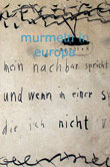 murmeln in
europa
mein nachbar spricht
und wenn in einer s
die ich nicht v